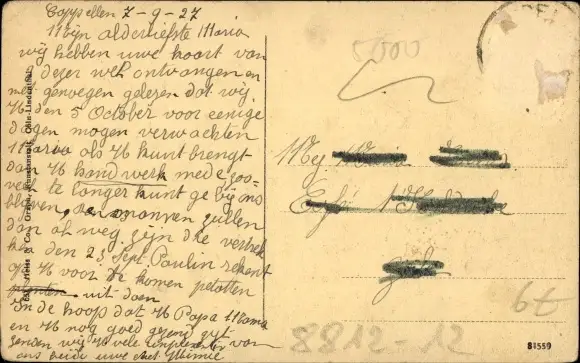 Cappellen 7-9-27
Mijn alderliefste Maria
wij hebben uwe kaart van
dezer wel ontvangen en
met genoegen gelezen dat wij
U den 5 October voor eenige
dagen mogen verwachten
Maria als U kunt brengt
dan U handwerk mede zoo-
veel te langer kunt ge bij ons
blijven, de mannen zullen
dan al weg zijn die vertrek
ken den 23 Sept. Paulin rekent
op U voor de komen petatten
uit doen
In de hoop dat U Papa Mama
en U nog goed gezond zijt
zenden wij U vele complimenten van
ons beide uwe Met Mimie
Heiss & Co., Graph. Kunstanstalt, Cöln-Lindenthal
5000
Mej
6t
8812-12
81559